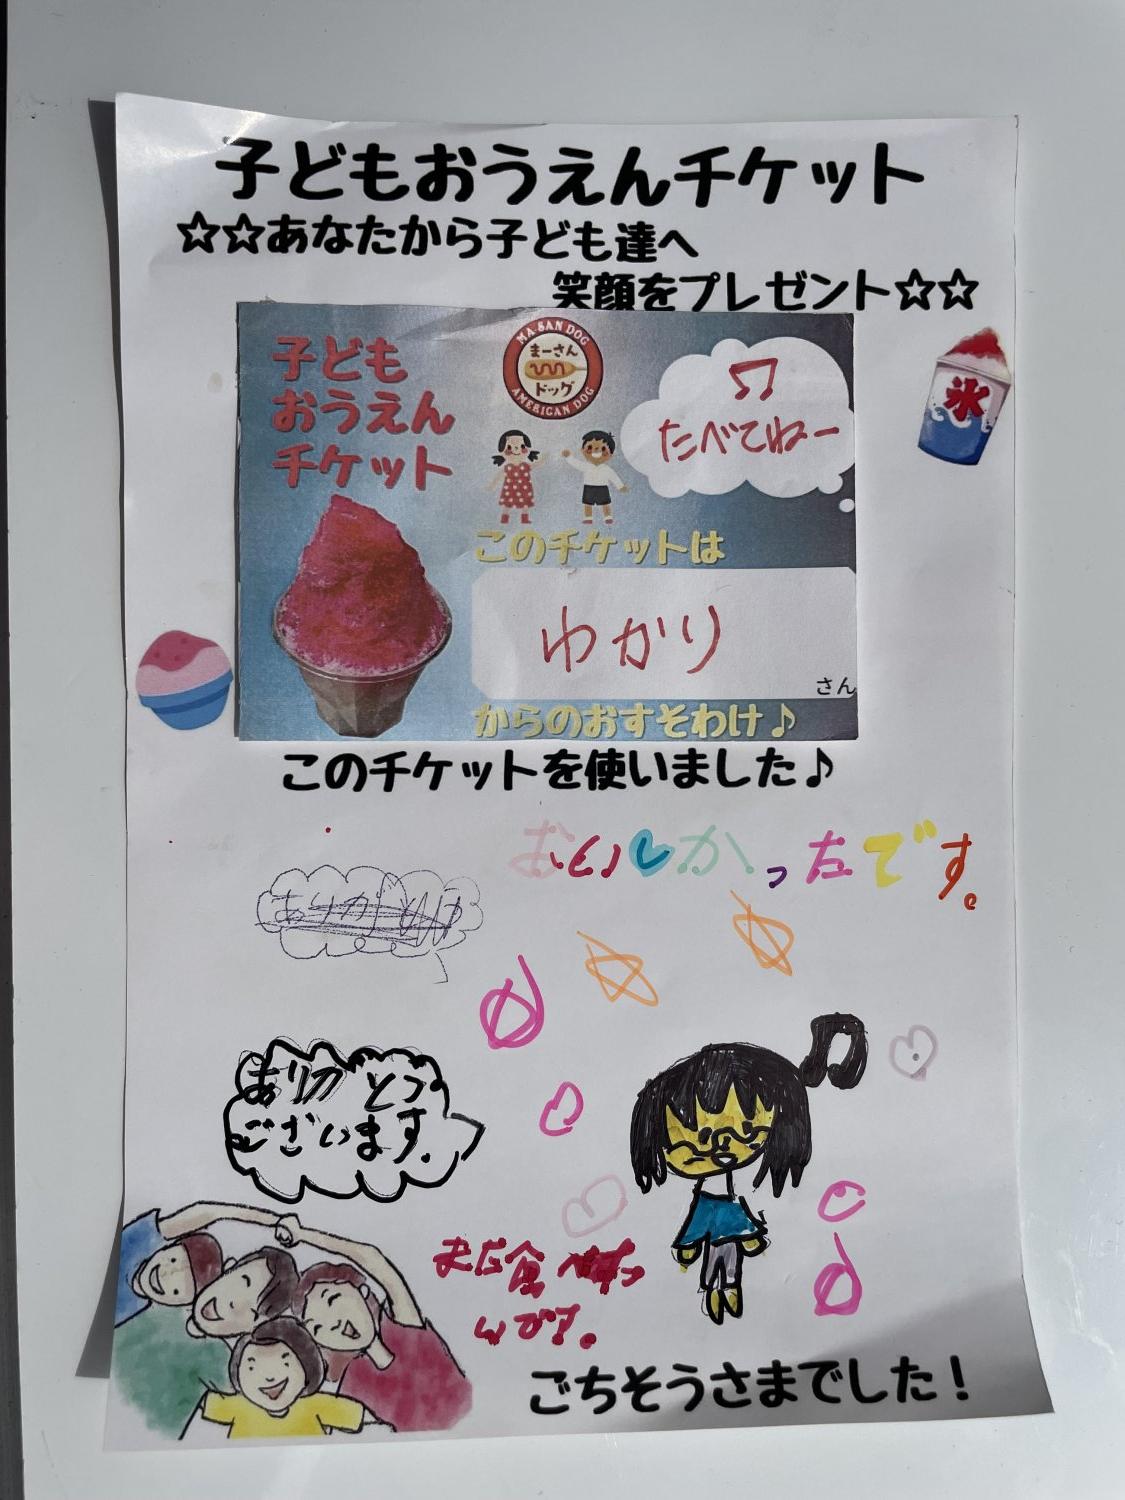 子どもおうえんチケット
☆☆あなたから子ども達へ
笑顔をプレゼント☆☆
子ども
おうえん
チケット
MA-SAN DOG
まーさん
ドッグ
AMERICAN DOG
♫
たべてねー
氷
このチケットは
ゆかり
さん
からのおすそわけ♪
このチケットを使いました♪
おいしかったです。
ありがとう
ございます。
また食べ
んです。
ごちそうさまでした!